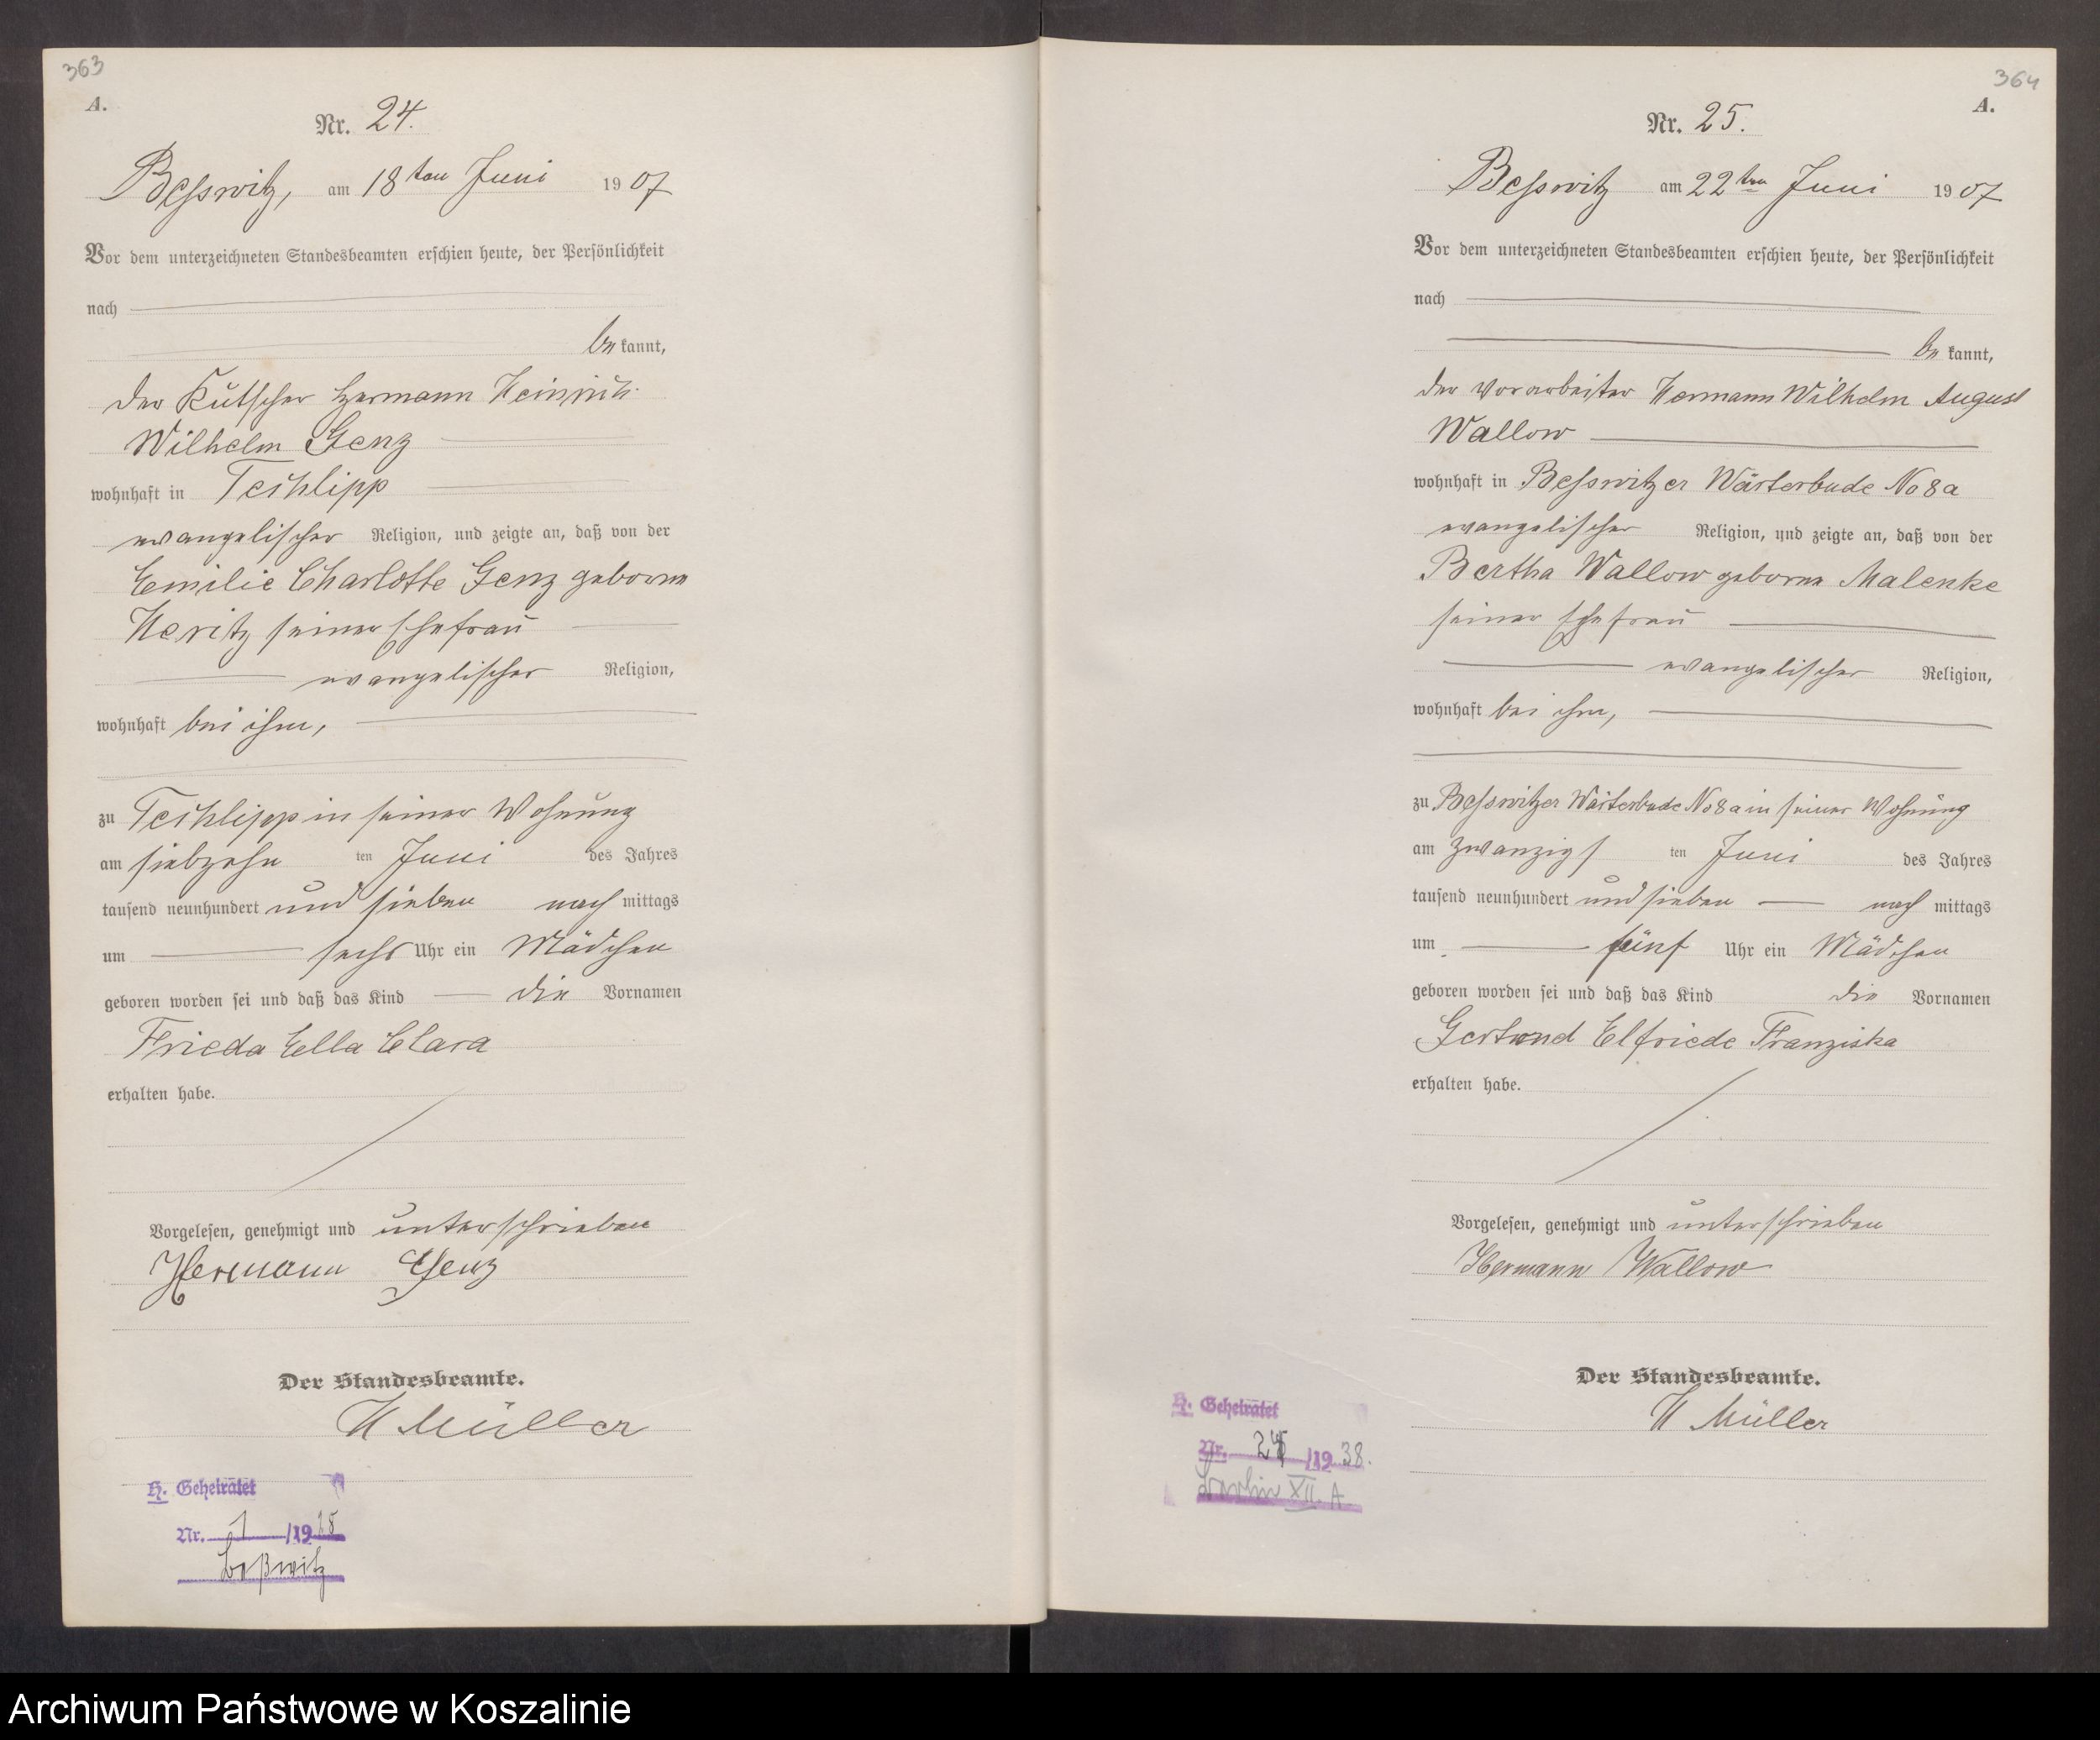 363
A.
Nr. 24.
Besswitz, am 18ten Juni 1907
Vor dem unterzeichneten Standesbeamten erschien heute, der Persönlichkeit
nach
be kannt,
der Kutscher Hermann Heinrich
Wilhelm Genz
wohnhaft in Techlipp
evangelischer Religion, und zeigte an, daß von der
Emilie Charlotte Genz geborne
Heritz seiner Ehefrau
evangelischer Religion,
wohnhaft bei ihm,
zu Techlipp in seiner Wohnung
am siebzehn ten Juni des Jahres
tausend neunhundert und sieben nach mittags
um sechs Uhr ein Mädchen
geboren worden sei und daß das Kind die Vornamen
Frieda Ella Clara
erhalten habe.
Vorgelesen, genehmigt und unterschrieben
Hermann Genz
Der Standesbeamte.
H Müller
H. Geheiratet
Nr. 1 /19
Beßwitz
364
A.
Nr. 25.
Besswitz am 22ten Juni 1907
Vor dem unterzeichneten Standesbeamten erschien heute, der Persönlichkeit
nach
be kannt,
der Vorarbeiter Hermann Wilhelm August
Wallow
wohnhaft in Besswitzer Wärterbude No 8a
evangelischer Religion, und zeigte an, daß von der
Bertha Wallow geborne Malenke
seiner Ehefrau
evangelischer Religion,
wohnhaft bei ihm,
zu Besswitzer Wärterbude No 8a in seiner Wohnung
am zwanzigs ten Juni des Jahres
tausend neunhundert und sieben nach mittags
um fünf Uhr ein Mädchen
geboren worden sei und daß das Kind die Vornamen
Gertrud Elfriede Franziska
erhalten habe.
Vorgelesen, genehmigt und unterschrieben
Hermann Wallow
Der Standesbeamte.
H Müller
H. Geheiratet
Nr. /19 38.
Berlin XII. A
Archiwum Państwowe w Koszalinie